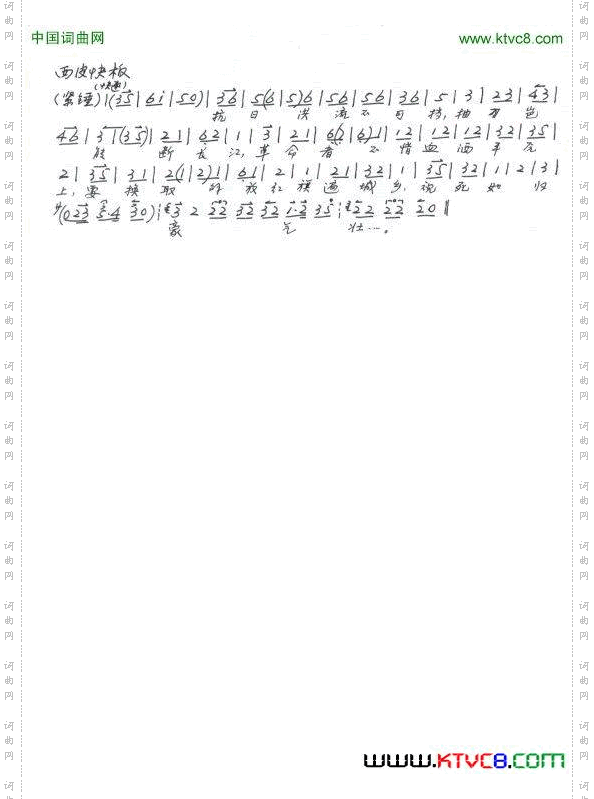 中国词曲网
www.ktvc8.com
西皮快板
(紧锤)|(35|6i|50)|36|5(6|5)6|56|56|36|5|3|23|43|
抗日洪流不可挡,抽刀岂
46|3|(35)|21|62|1|3|21|6(2|6)1|12|12|12|32|35|
能断长江,革命者不惜血洒平原
2|35|31|2(1|2)1|61|2|1|21|32|1|35|32|1|2|3|
上,要换取红旗遍城乡,视死如归
(023 5·4 30) 3 2 22 32 32 1·2 35 22 22 20 ‖
豪气壮….
www.KTVC8.com
词曲网